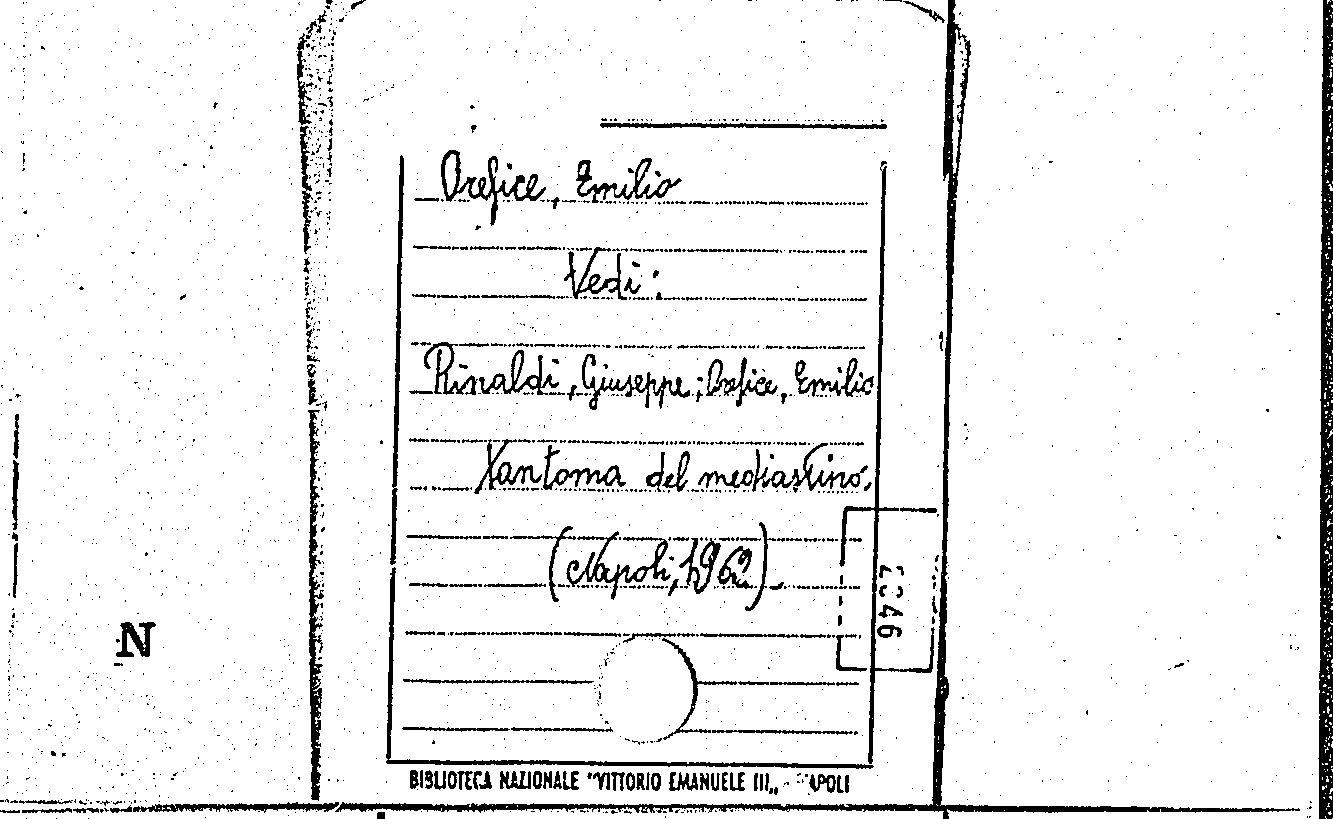 Orefice, Emilio
Vedi:
Rinaldi, Giuseppe; Orefice, Emilio
Xantoma del mediastino.
(Napoli, 1962).
N
BIBLIOTECA NAZIONALE "VITTORIO EMANUELE III„ - NAPOLI